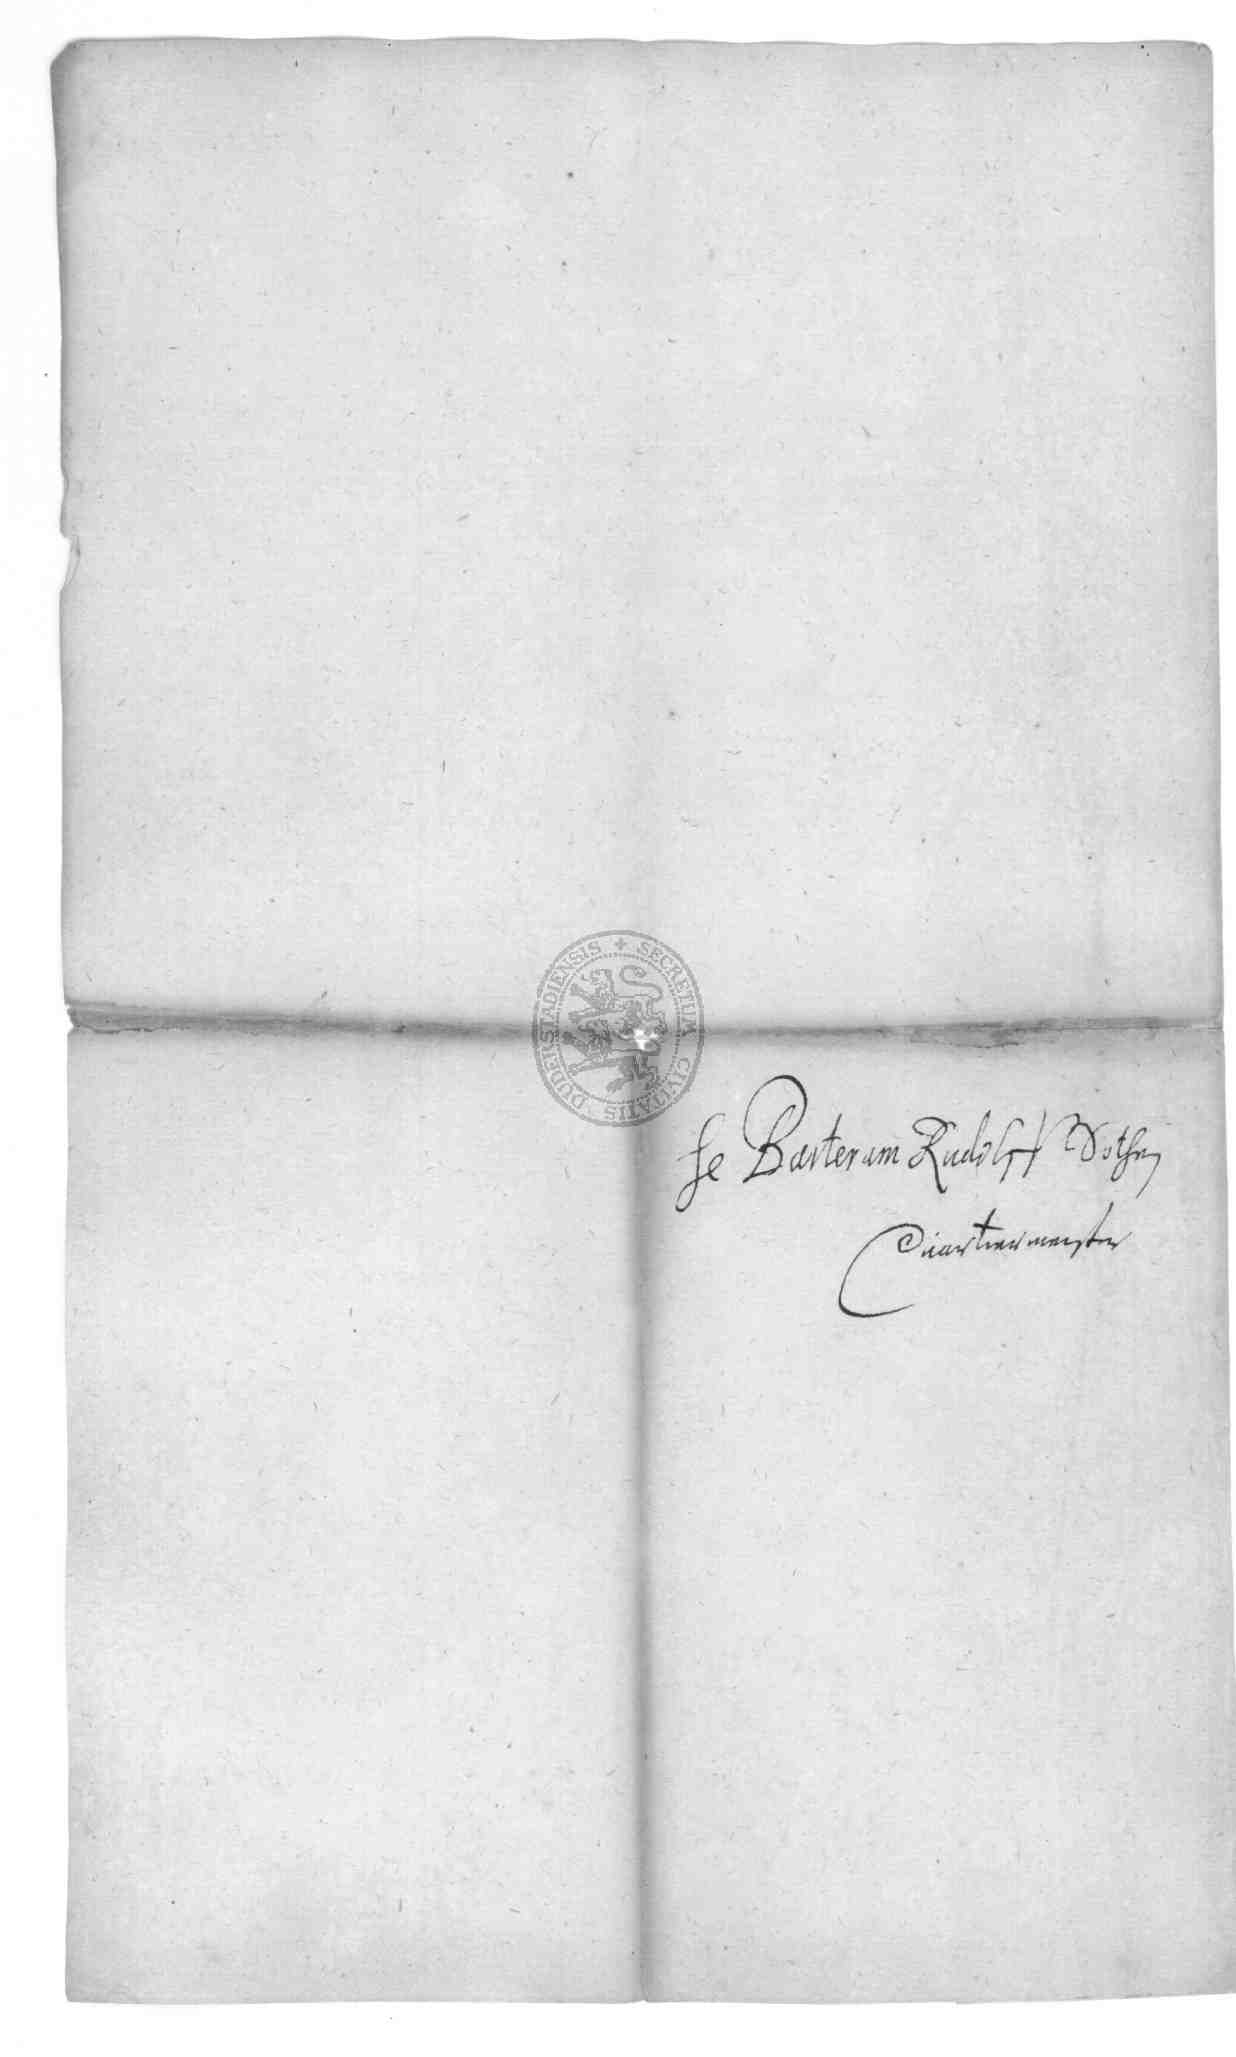 SECRETUM CIVITATIS DUDERSTADIENSIS
Barteram Rudolff
Quartiermeister